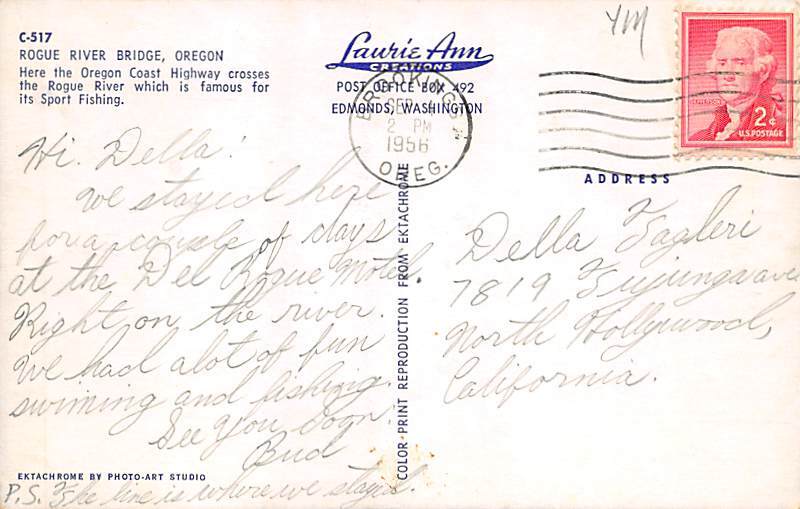 C-517
ROGUE RIVER BRIDGE, OREGON
Here the Oregon Coast Highway crosses
the Rogue River which is famous for
its Sport Fishing.
Laurie Ann
CREATIONS
POST OFFICE BOX 492
EDMONDS, WASHINGTON
YM
BROOKINGS
SEP
2 PM
1956
OREG.
JEFFERSON
2¢
U.S. POSTAGE
ADDRESS
Hi. Della!
We stayed here
for a couple of days
at the Del Rogue Motel.
Right on the river.
We had alot of fun
swiming and fishing.
See you soon.
Bud
P.S. The line is where we stayed.
Della Tagleri
7819 Tujunga ave
North Hollywood,
California.
COLOR-PRINT REPRODUCTION FROM EKTACHROME
EKTACHROME BY PHOTO-ART STUDIO